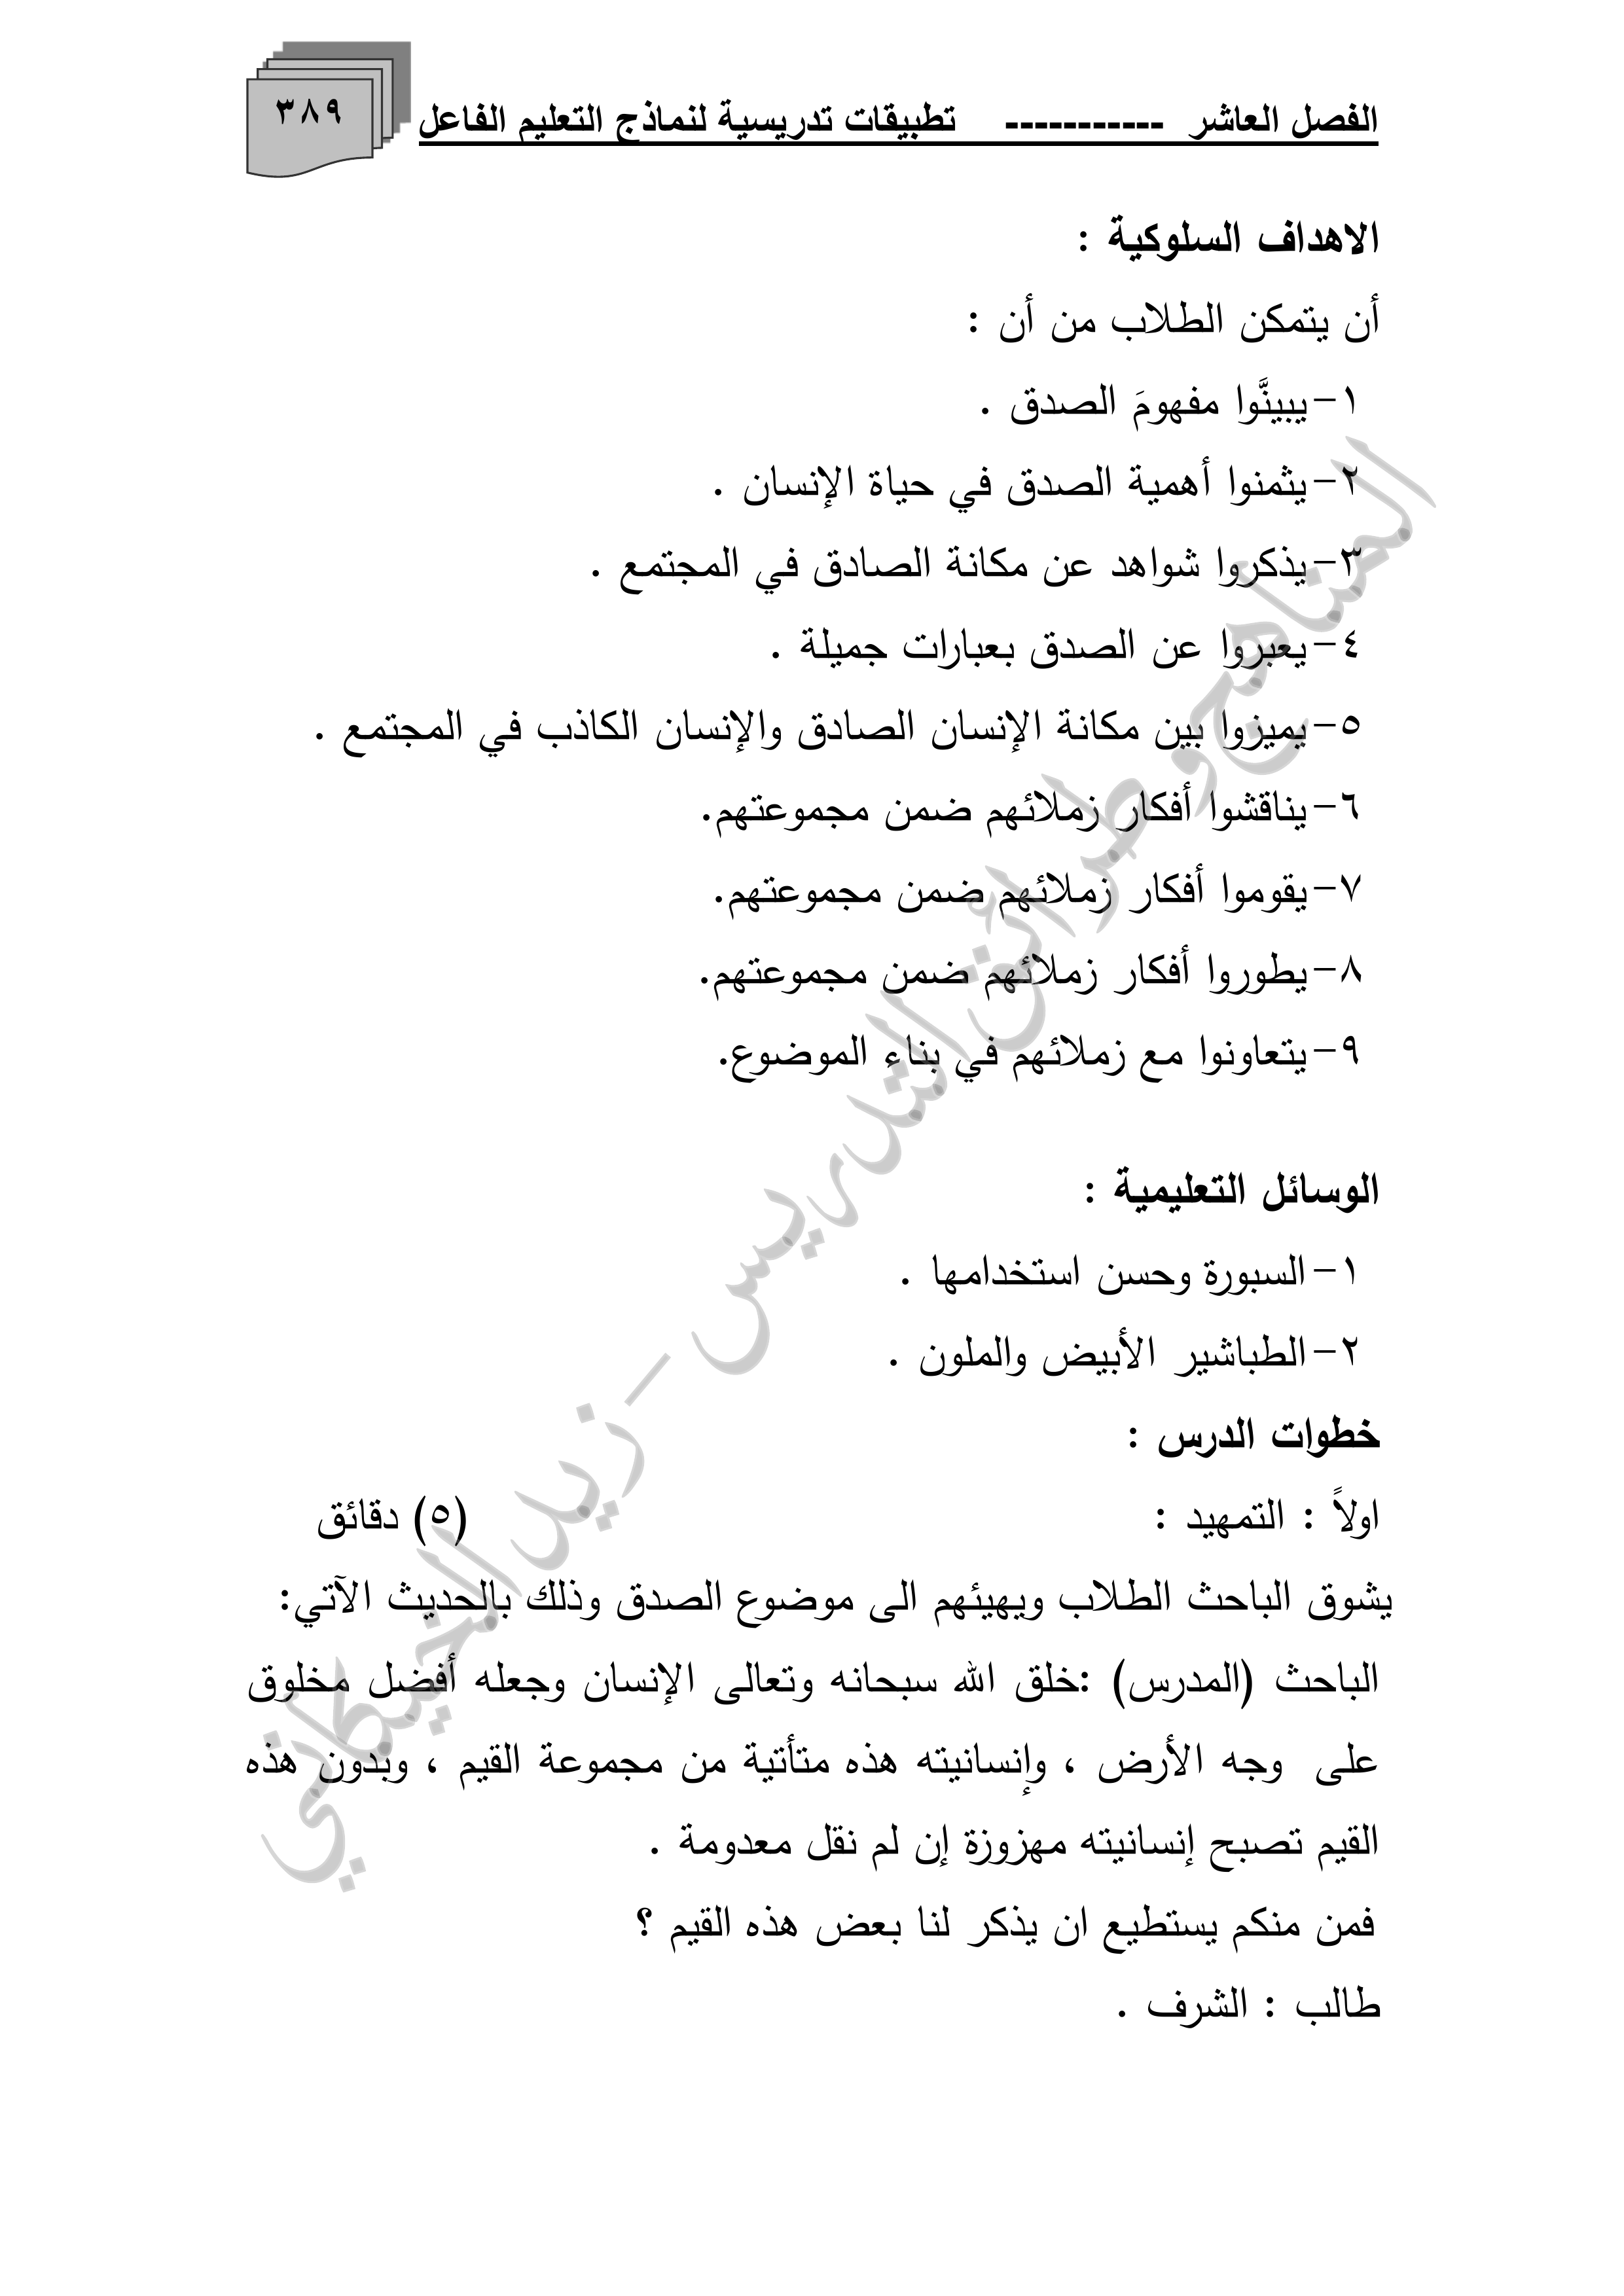 الفصل العاشر ----------- تطبيقات تدريسية لنماذج التعليم الفاعل
٣٨٩
الاهداف السلوكية :
أن يتمكن الطلاب من أن :
١- يبينَّوا مفهومَ الصدق .
٢- يثمنوا أهمية الصدق في حياة الإنسان .
٣- يذكروا شواهد عن مكانة الصادق في المجتمع .
٤- يعبروا عن الصدق بعبارات جميلة .
٥- يميزوا بين مكانة الإنسان الصادق والإنسان الكاذب في المجتمع .
٦- يناقشوا أفكار زملائهم ضمن مجموعتهم.
٧- يقوموا أفكار زملائهم ضمن مجموعتهم.
٨- يطوروا أفكار زملائهم ضمن مجموعتهم.
٩- يتعاونوا مع زملائهم في بناء الموضوع.
الوسائل التعليمية :
١- السبورة وحسن استخدامها .
٢- الطباشير الأبيض والملون .
خطوات الدرس :
اولاً : التمهيد : (٥) دقائق
يشوق الباحث الطلاب ويهيئهم الى موضوع الصدق وذلك بالحديث الآتي:
الباحث (المدرس) :خلق الله سبحانه وتعالى الإنسان وجعله أفضل مخلوق
على وجه الأرض ، وإنسانيته هذه متأتية من مجموعة القيم ، وبدون هذه
القيم تصبح إنسانيته مهزوزة إن لم نقل معدومة .
فمن منكم يستطيع ان يذكر لنا بعض هذه القيم ؟
طالب : الشرف .
المناهج وطرائق التدريس - زيد الخيكاني